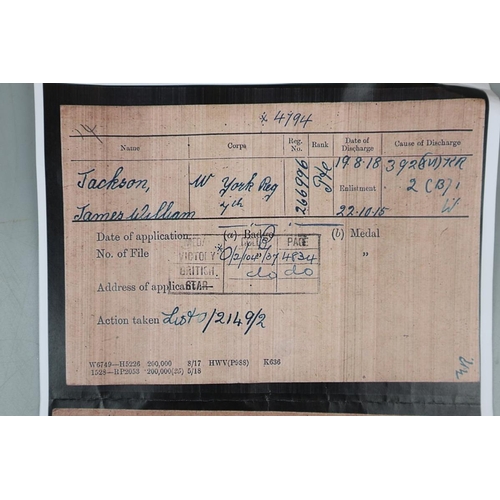 * 4794
Name Corps Reg. No. Rank Date of Discharge Cause of Discharge
Jackson, W York Reg 266996 Pte 19.8.18 392(XVI) KR
James William 7th Enlistment 22.10.15 2(B)1 W
Date of application: (a) Badge (b) Medal
No. of File „
ROLL PAGE
VICTORY *O/2/104B/37 4834
BRITISH do do
STAR
Address of applicant
Action taken List O/2149/2
W6749—H5226 200,000 8/17 HWV(P988) K636
1528—RP2053 200,000(35) 5/18